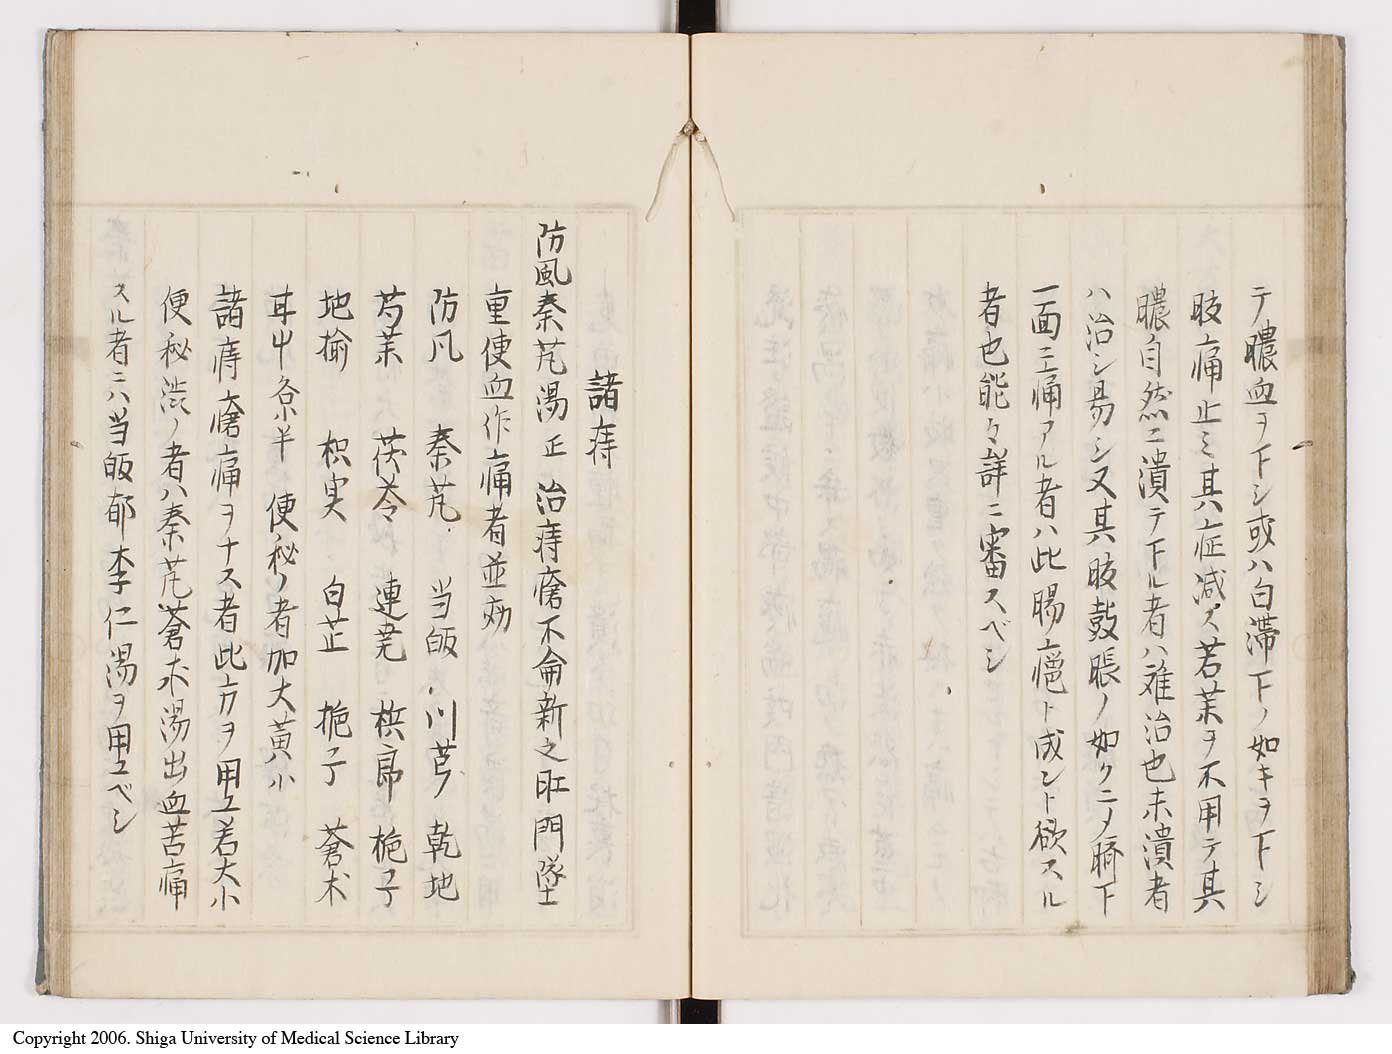 テ膿血ヲ下シ或ハ白滞下ノ如キヲ下シ
肢痛止ミ其症减ズ若薬ヲ不用テ其
膿自然ニ潰テ下ル者ハ难治也未潰者
ハ治シ易シ又其肢皷脹ノ如クニノ臍下
一面ニ痛アル者ハ此腸
ト成ント欲スル
者也能々詳ニ審スベシ
諸痔
防風秦芃湯正 治痔瘡不侖新之肛門墜
重便血作痛者並効
防凡 秦芃 当皈 川芎 乾地
芍薬 茯苓 連尭 梹郎 梔子
地榆 枳実 白芷 梔子 蒼朮
耳中各等半 便秘ノ者加大黄
諸痔
痛ヲナス者此方ヲ用ユ若大小
便秘渋ノ者ハ秦芃蒼朮湯出血苦痛
スル者ニハ当皈郁李仁湯ヲ用ユベシ
Copyright 2006. Shiga University of Medical Science Library